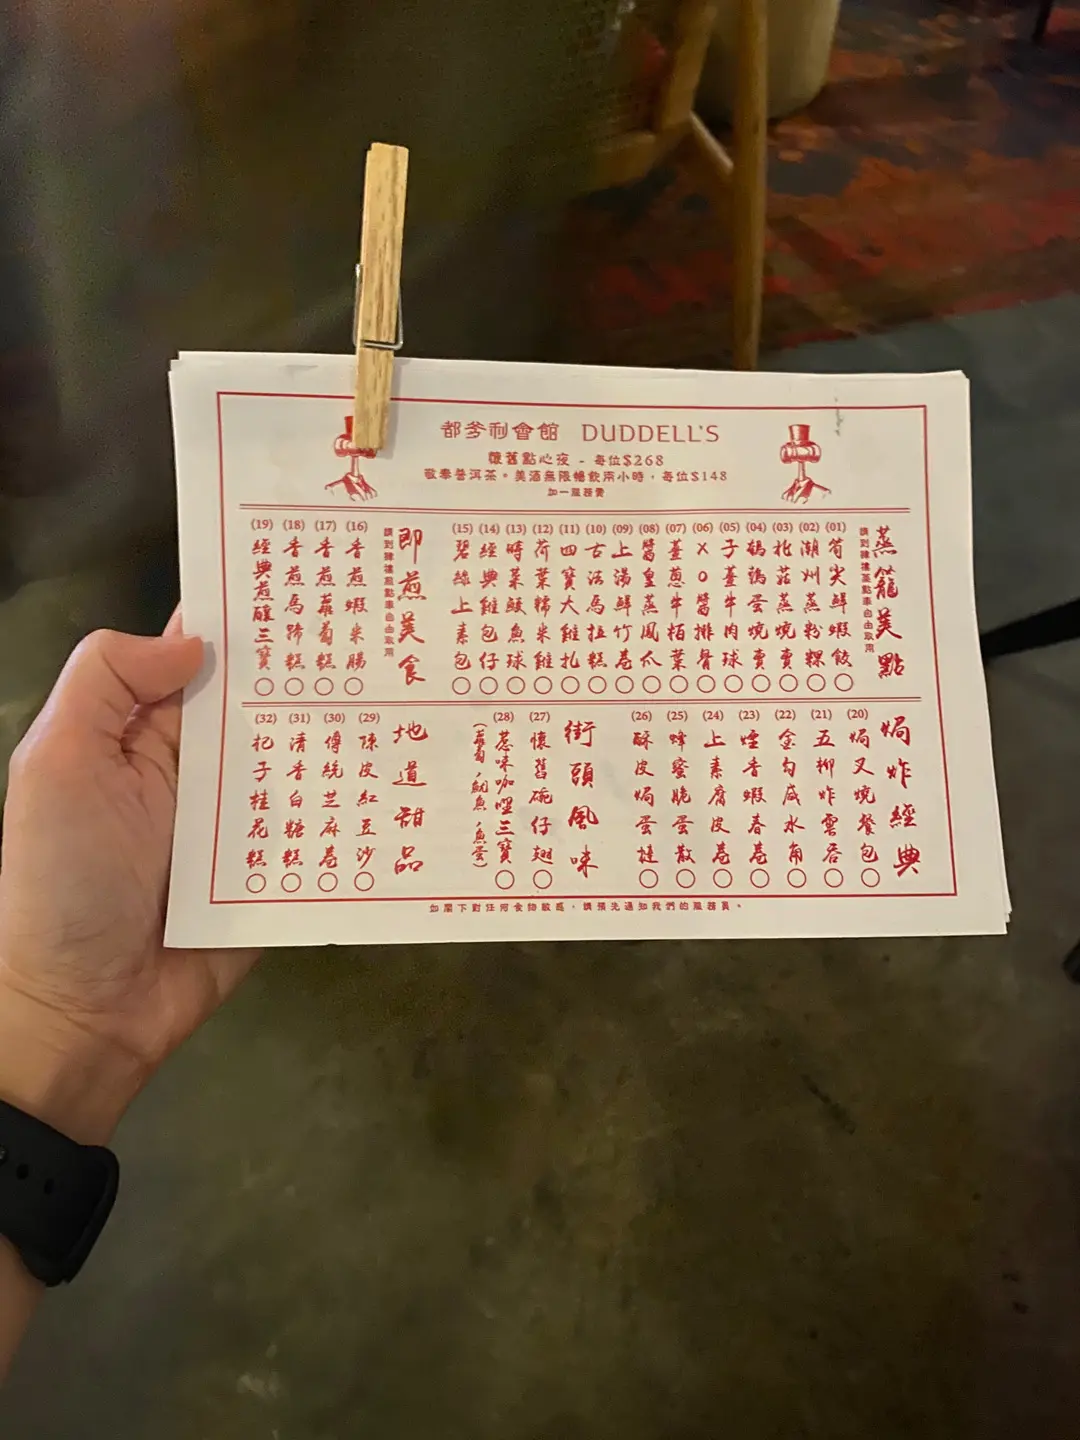 都爹利會館 DUDDELL'S
懷舊點心夜 - 每位$268
敬奉普洱茶。美酒無限暢飲兩小時，每位$148
加一服務費
蒸籠美點
(01) 筍尖鮮蝦餃
(02) 潮州蒸粉粿
(03) 北菇蒸燒賣
(04) 鵪鶉蛋燒賣
(05) 子薑牛肉球
(06) XO醬排骨
(07) 薑蔥牛栢葉
(08) 醬皇蒸鳳爪
(09) 上湯鮮竹卷
(10) 古法馬拉糕
(11) 四寶大雞扎
(12) 荷葉糯米雞
(13) 時菜鯪魚球
(14) 經典雞包仔
(15) 碧綠上素包
即煎美食
(16) 香煎蝦米腸
(17) 香煎蘿蔔糕
(18) 香煎馬蹄糕
(19) 經典煎釀三寶
焗炸經典
(20) 焗叉燒餐包
(21) 五柳炸雲吞
(22) 金勾咸水角
(23) 煙香蝦春卷
(24) 上素腐皮卷
(25) 蜂蜜脆蛋散
(26) 酥皮焗蛋撻
街頭風味
(27) 懷舊碗仔翅
(28) 惹味咖喱三寶
(蘿蔔、魷魚、魚蛋)
地道甜品
(29) 陳皮紅豆沙
(30) 傳統芝麻卷
(31) 清香白糖糕
(32) 杞子桂花糕
如閣下對任何食物敏感，請預先通知我們的服務員。